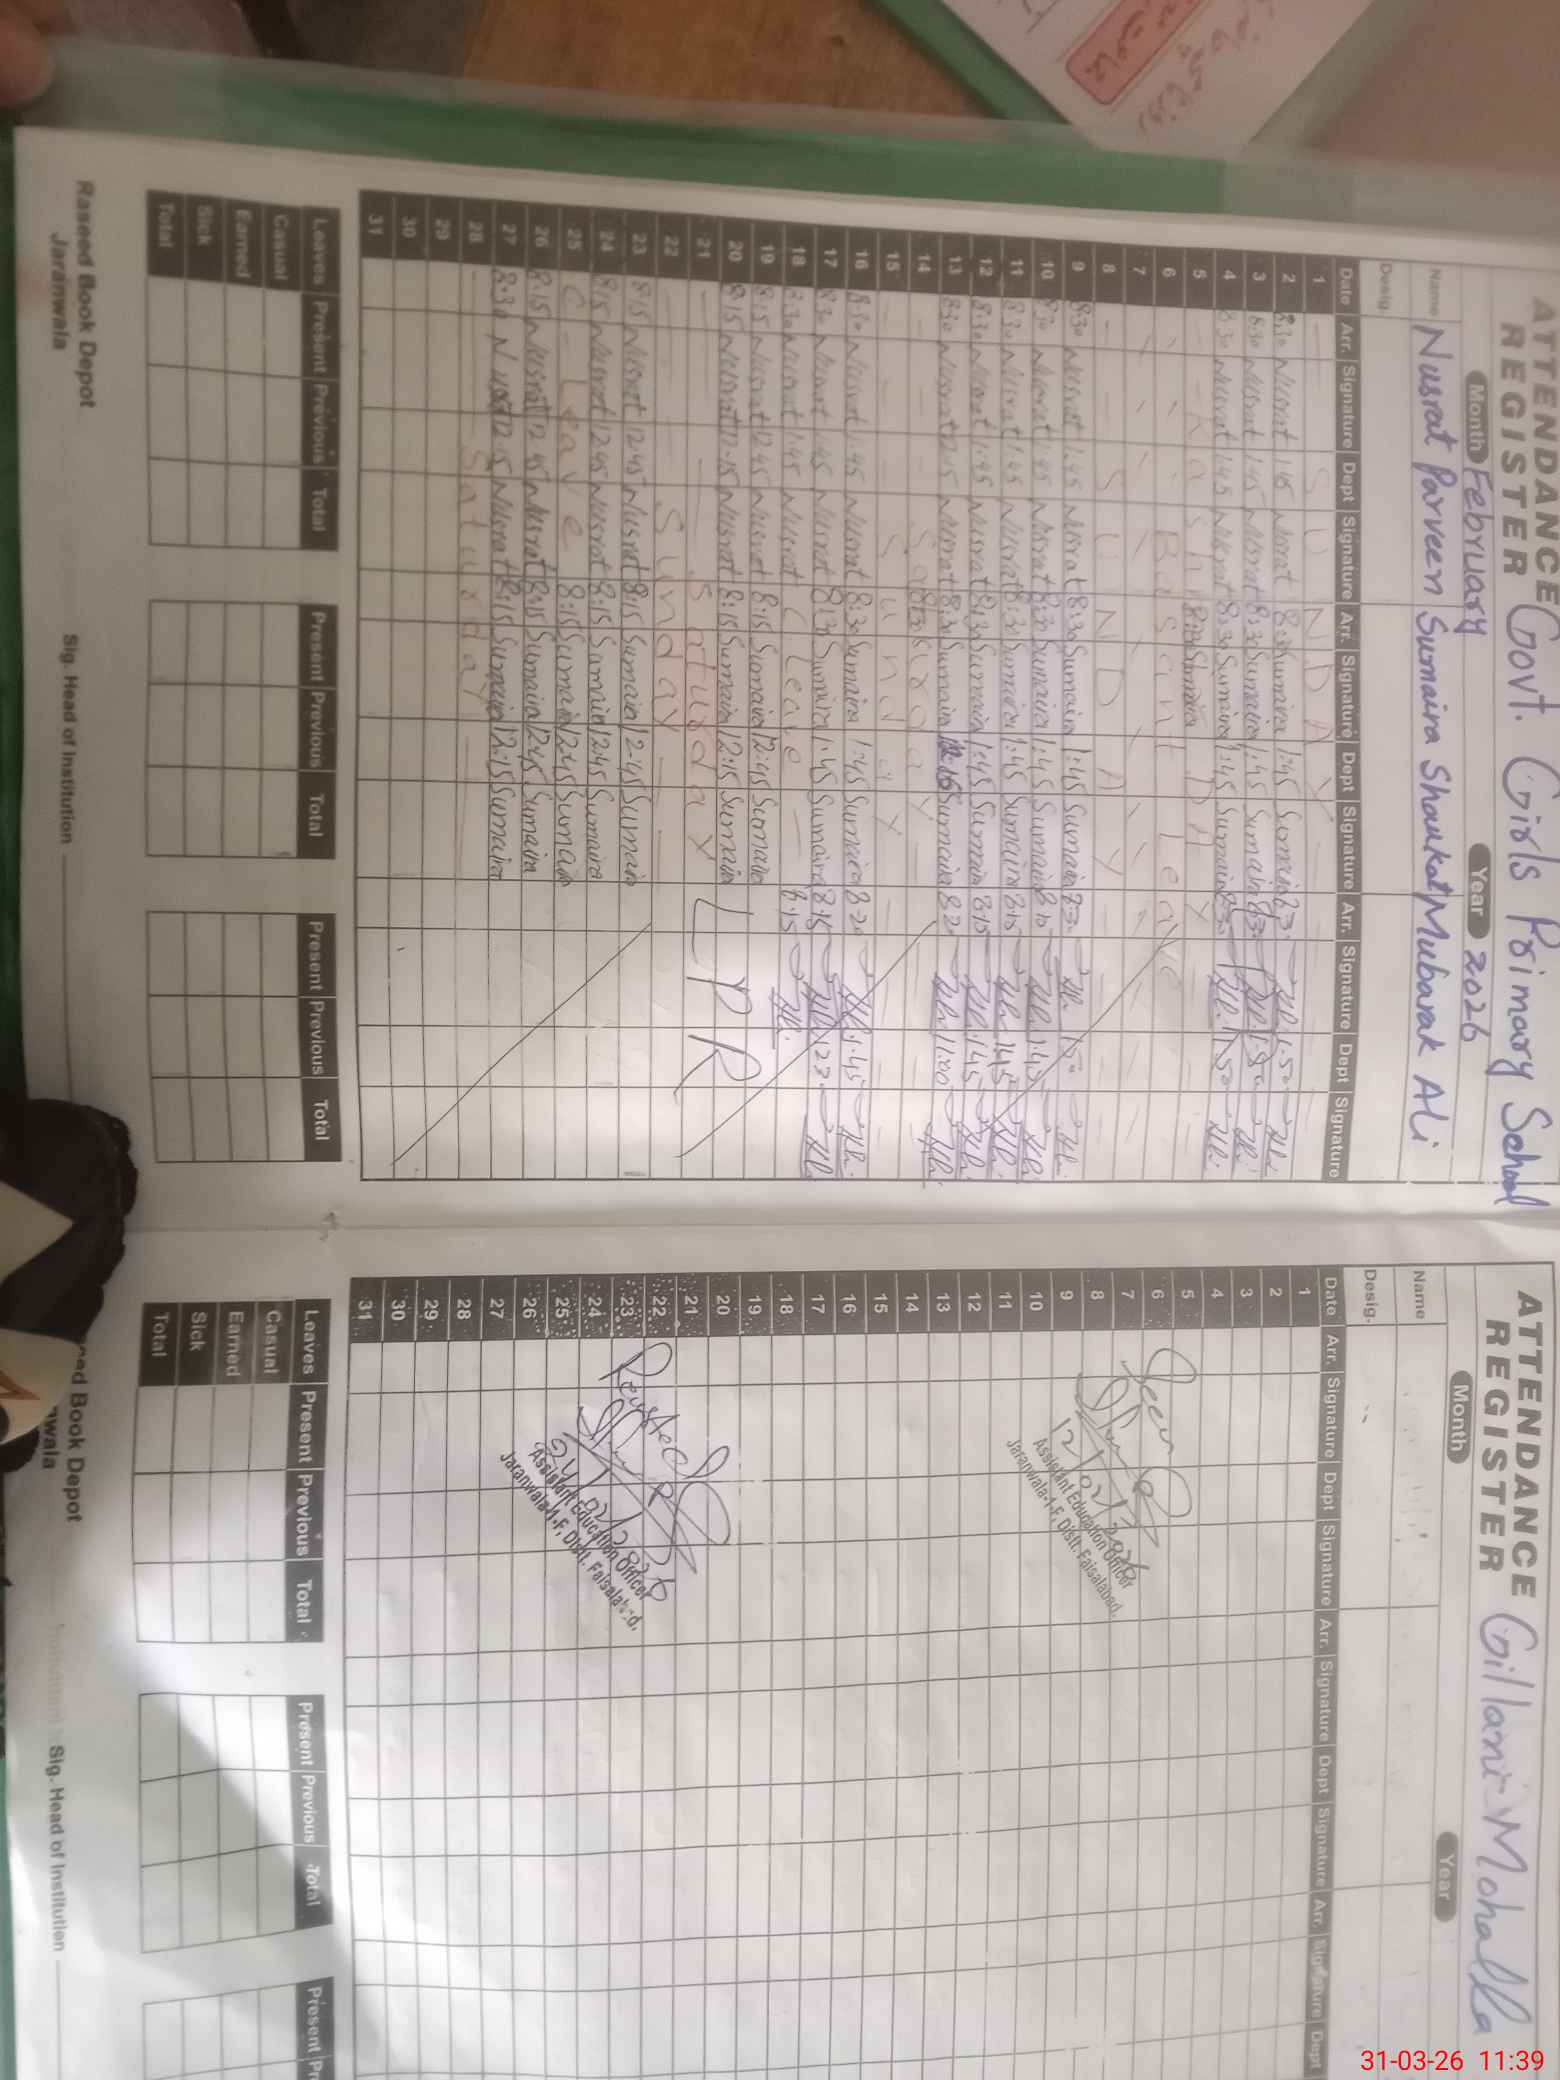 ATTENDANCE REGISTER Govt. Girls Primary School
Month February Year 2026
Name Nusrat Parveen Sumaira Shaukat Mubarak Ali
Desig.
Date Arr. Signature Dept Signature Arr. Signature Dept Signature Arr. Signature Dept Signature
1 SUNDAY
2 8:30 Nusrat 1:45 Nusrat 8:30 Sumaira 1:45 Sumaira
3 8:30 Nusrat 1:45 Nusrat 8:30 Sumaira 1:45 Sumaira
4 8:30 Nusrat 1:45 Nusrat 8:30 Sumaira 1:45 Sumaira
5 Kashmir DAY
6 Basant Leave
7
8 SUNDAY
9 8:30 Nusrat 1:45 Nusrat 8:30 Sumaira 1:45 Sumaira
10 8:30 Nusrat 1:45 Nusrat 8:30 Sumaira 1:45 Sumaira
11 8:30 Nusrat 1:45 Nusrat 8:30 Sumaira 1:45 Sumaira 8:15 1:45
12 8:30 Nusrat 1:45 Nusrat 8:30 Sumaira 1:45 Sumaira 8:15 1:45
13 8:30 Nusrat 12:15 Nusrat 8:30 Sumaira Sumaira 8:20 11:00
14 Saturday
15 Sunday
16 8:30 Nusrat 1:45 Nusrat 8:30 Sumaira 1:45 Sumaira 8:20 1:45
17 8:30 Nusrat 1:45 Nusrat 8:30 Sumaira 1:45 Sumaira 8:15 1230
18 8:30 Nusrat 1:45 Nusrat C Leave 8:15
19 8:15 Nusrat 12:45 Nusrat 8:15 Sumaira 12:45 Sumaira
20 8:15 Nusrat 12:15 Nusrat 8:15 Sumaira 12:15 Sumaira
21 Saturday LPR
22 Sunday
23 8:15 Nusrat 12:45 Nusrat 8:15 Sumaira 12:45 Sumaira
24 8:15 Nusrat 12:45 Nusrat 8:15 Sumaira 12:45 Sumaira
25 C - Leave 8:15 Sumaira 12:45 Sumaira
26 8:15 Nusrat 12:45 Nusrat 8:15 Sumaira 12:45 Sumaira
27 8:30 Nusrat 12:15 Nusrat 8:15 Sumaira 12:15 Sumaira
28 Saturday
29
30
31
Leaves Present Previous Total Present Previous Total Present Previous Total
Casual
Earned
Sick
Total
Raseed Book Depot
Jaranwala
Sig. Head of Institution
ATTENDANCE REGISTER Gillani Mohalla
Month Year
Name
Desig.
Date Arr. Signature Dept Signature Arr. Signature Dept Signature Arr. Signature Dept
1
2
3
4
5
6
7
8
9
10
11
12
13
14
15
16
17
18
19
20
21
22
23
24
25
26
27
28
29
30
31
Seen
12/02/2026
Assistant Education Officer
Jaranwala-1-F, Distt. Faisalabad.
24/02/2026
Assistant Education Officer
Jaranwala-1-F, Distt. Faisalabad.
Leaves Present Previous Total Present Previous Total Present
Casual
Earned
Sick
Total
Book Depot
Sig. Head of Institution
31-03-26 11:39